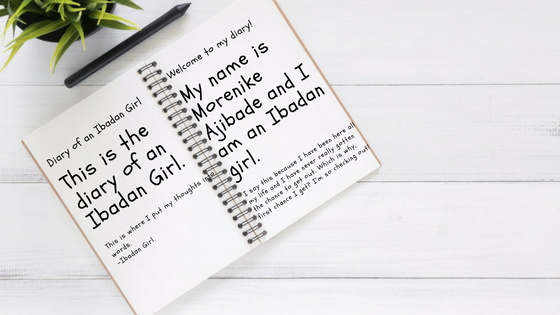 Diary of an Ibadan Girl
This is the
diary of an
Ibadan Girl.
This is where I put my thoughts
words.
-Ibadan Girl.
Welcome to my diary!
My name is
Morenike
Ajibade and I
am an Ibadan
girl.
I say this because I have been here all
my life and I have never really gotten
the chance to get out. Which is why,
first chance I get? I'm so checking out!